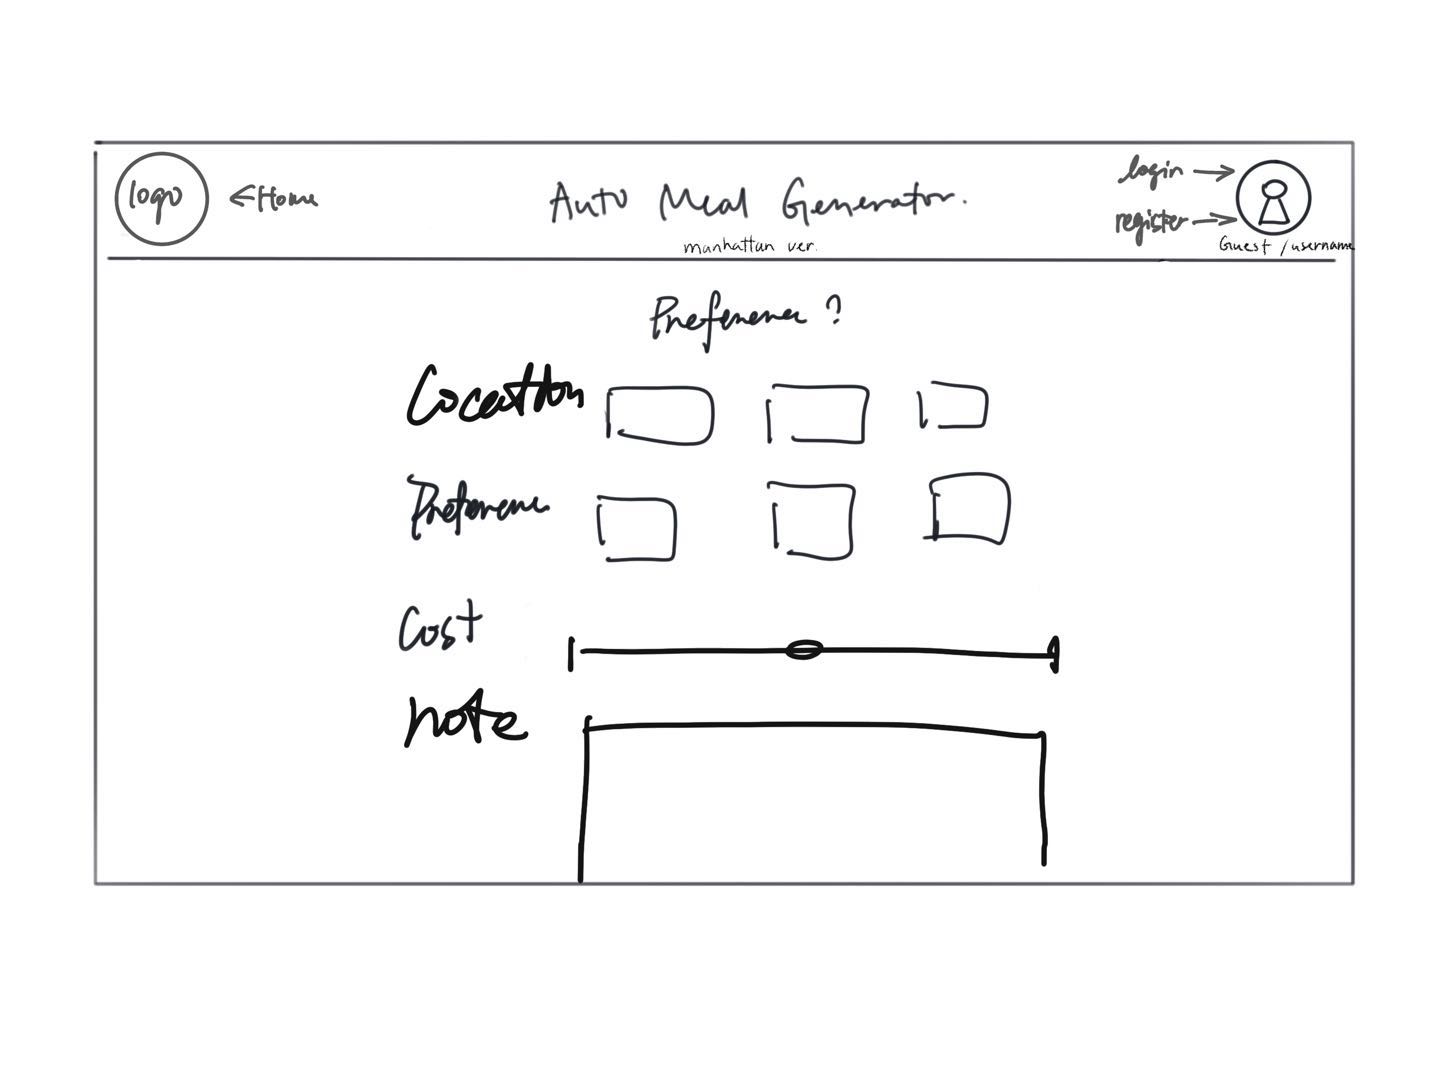 logo
←Home
Auto Meal Generator.
manhattan ver.
login →
register →
Guest / username
Preference ?
Location
Preference
Cost
note